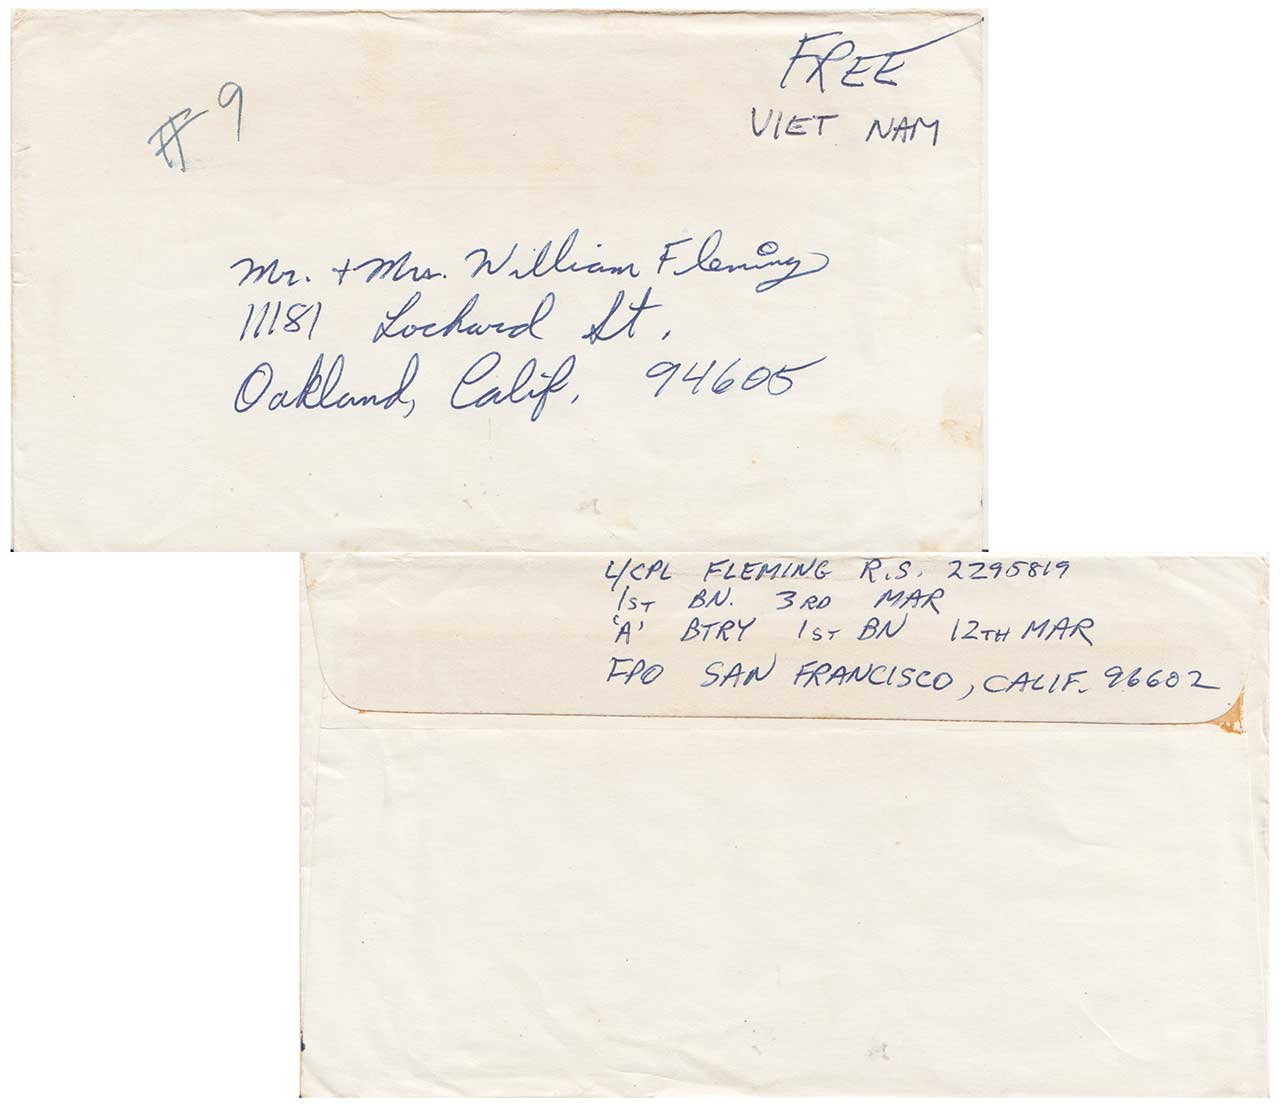 #9
FREE
VIET NAM
Mr. + Mrs. William Fleming
11181 Lochard St.
Oakland, Calif. 94605
L/CPL FLEMING R.S. 2295819
1ST BN. 3RD MAR
'A' BTRY 1ST BN 12TH MAR
FPO SAN FRANCISCO, CALIF. 96602